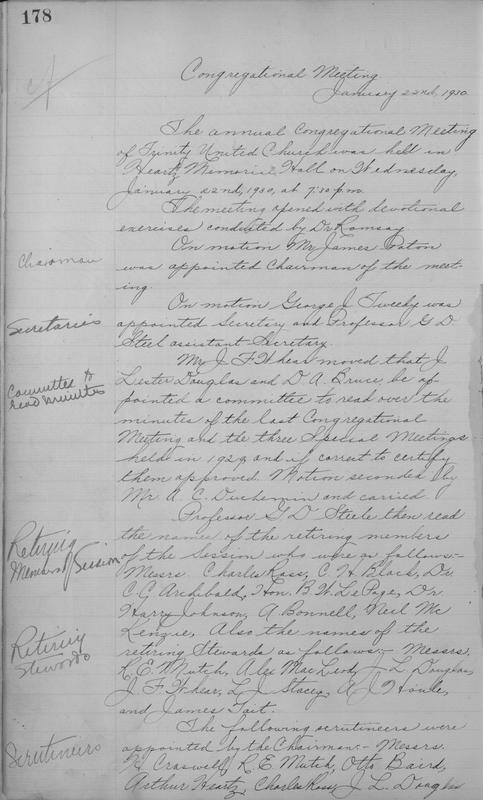 178
Congregational Meeting.
January 22nd, 1930.
The annual Congregational Meeting
of Trinity United Church was held in
Heartz Memorial Hall on Wednesday,
January 22nd, 1930, at 7:30 p.m.
The meeting opened with devotional
exercises conducted by Dr Ramsay.
Chairman
On motion Mr James Paton
was appointed Chairman of the meet-
ing.
Secretaries
On motion George J. Tweedy was
appointed Secretary and Professor G D
Steel assistant Secretary.
Committee to
read minutes
Mr J. F. Whear moved that J
Lester Douglas and D. A. Bruce, be ap-
pointed a committee to read over the
minutes of the last Congregational
Meeting and the three Special Meetings
held in 1929 and if correct to certify
them approved. Motion seconded by
Mr. A. C. Duchemin and carried.
Retiring
Members of Session
Professor G D. Steele then read
the names of the retiring members
of the Session who were as follows:-
Messrs. Charles Ross, C. H. Black, Dr.
C. G Archibald, Hon. B. W. LePage, Dr
Harry Johnson, A Bonnell, Neil Mc
Kenzie, Also the names of the
Retiring
Stewards
retiring Stewards as follows:- Messrs,
R. E. Mutch, Alex MacLeod, J. L. Douglas,
J. F. Whear, L. J. Stacey, A J Houle,
and James Tait.
Scrutineers
The following scrutineers were
appointed by the Chairman:- Messrs.
Craswell, R. E. Mutch, Otto Baird,
Arthur Heartz, Charles Ross, J. L. Douglas